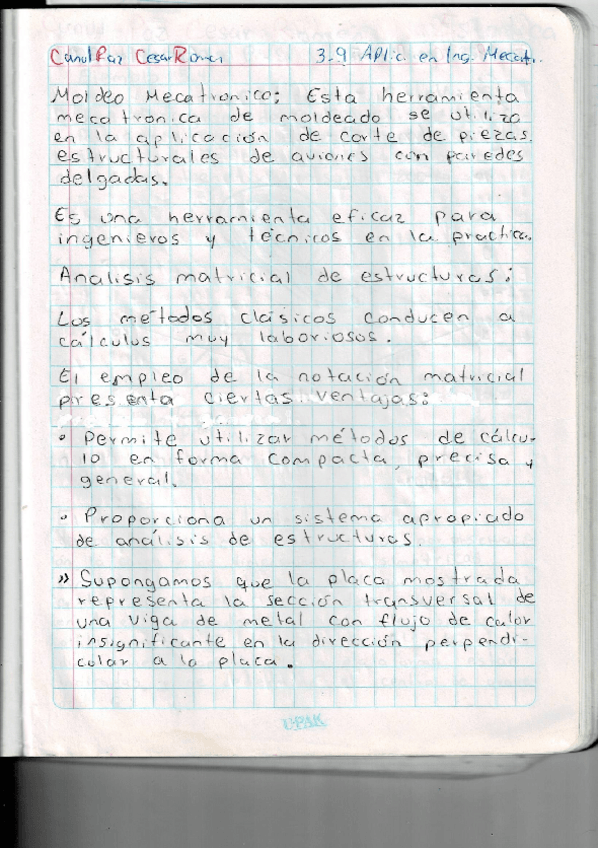 Canul Paz Cesar Roman 3-9 Aplic. en Ing. Mecat.
Moldeo Mecatronico; Esta herramienta
mecatronica de moldeado se utiliza
en la aplicación de corte de piezas
estructurales de aviones con paredes
delgadas.
Es una herramienta eficaz para
ingenieros y técnicos en la practica.
Analisis matricial de estructuras:
Los métodos clásicos conducen a
cálculos muy laboriosos.
El empleo de la notación matricial
presenta ciertas ventajas:
• Permite utilizar métodos de cálcu-
lo en forma compacta, precisa y
general.
• Proporciona un sistema apropiado
de análisis de estructuras.
» Supongamos que la placa mostrada
representa la sección transversal de
una viga de metal con flujo de calor
insignificante en la dirección perpendi-
cular a la placa.